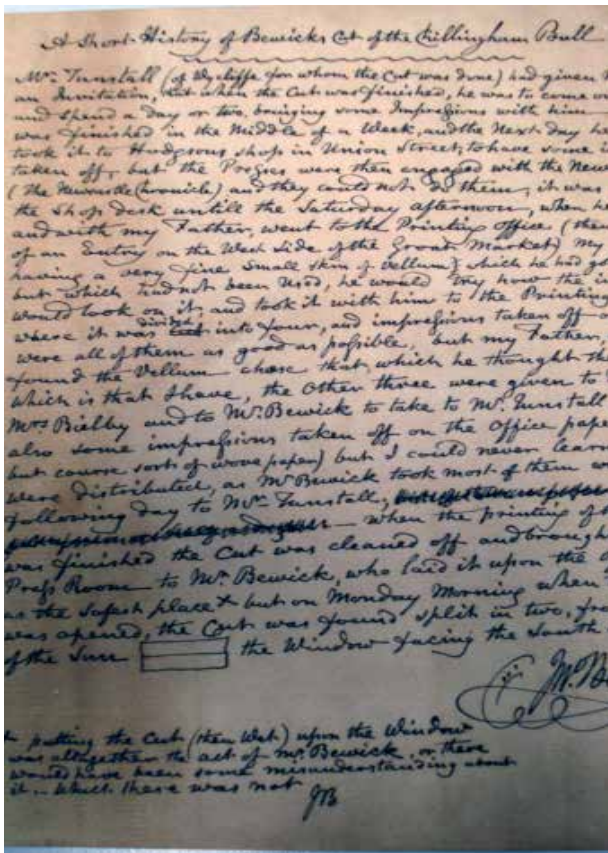 A Short History of Bewicks Cut of the Chillingham Bull
Mr. Tunstall (of Wycliffe for whom the Cut was done) had given
an Invitation, that when the Cut was finished, he was to come
and spend a day or two, bringing some Impressions with him
was finished in the Middle of a Week, and the Next day he
took it to Hodgsons shop in Union Street, to have some
taken off, but the Presses were then engaged with the
(the Newcastle Chronicle) and they could not do them, it was
the Shop desk untill the Saturday afternoon, when he
and with my Father, went to the Printing Office (then
of an Entry on the West Side of the Groat Market) My
having a very fine small skin of Vellum) which he had
but which had not been Used, he would try how the
would look on it, and took it with him to the Printing
where it was divided into four, and impressions taken off
were all of them as good as possible, but my Father,
found the Vellum chose that which he thought
which is that I have, the Other three were given to
Mrs Bielby and to Mr. Bewick to take to Mr. Tunstall
also some impressions taken off on the Office
but coarse sorts of wove paper) but I could never
were distributed, as Mr Bewick took most of them
following day to Mr. Tunstall,
when the printing of
was finished the Cut was cleaned off and
Press Room to Mr. Bewick, who laid it upon the
as the safest place + but on Monday Morning when
was opened, the Cut was found split in two,
of the Sun the Window facing the South
+ putting the Cut (then Wet) upon the Window
was altogether the act of Mr. Bewick, or there
would have been some misunderstanding about
it - which there was not
JB